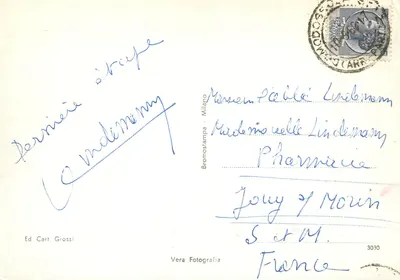 Dernière étape
Lindemann
Ed Cart Grossi
Bromostampa - Milano
Vera Fotografia
3010
DOMODOSSOLA
Lindemann
Mademoiselle Lindemann
Pharmacie
Jouy s/ Morin
S et M.
France